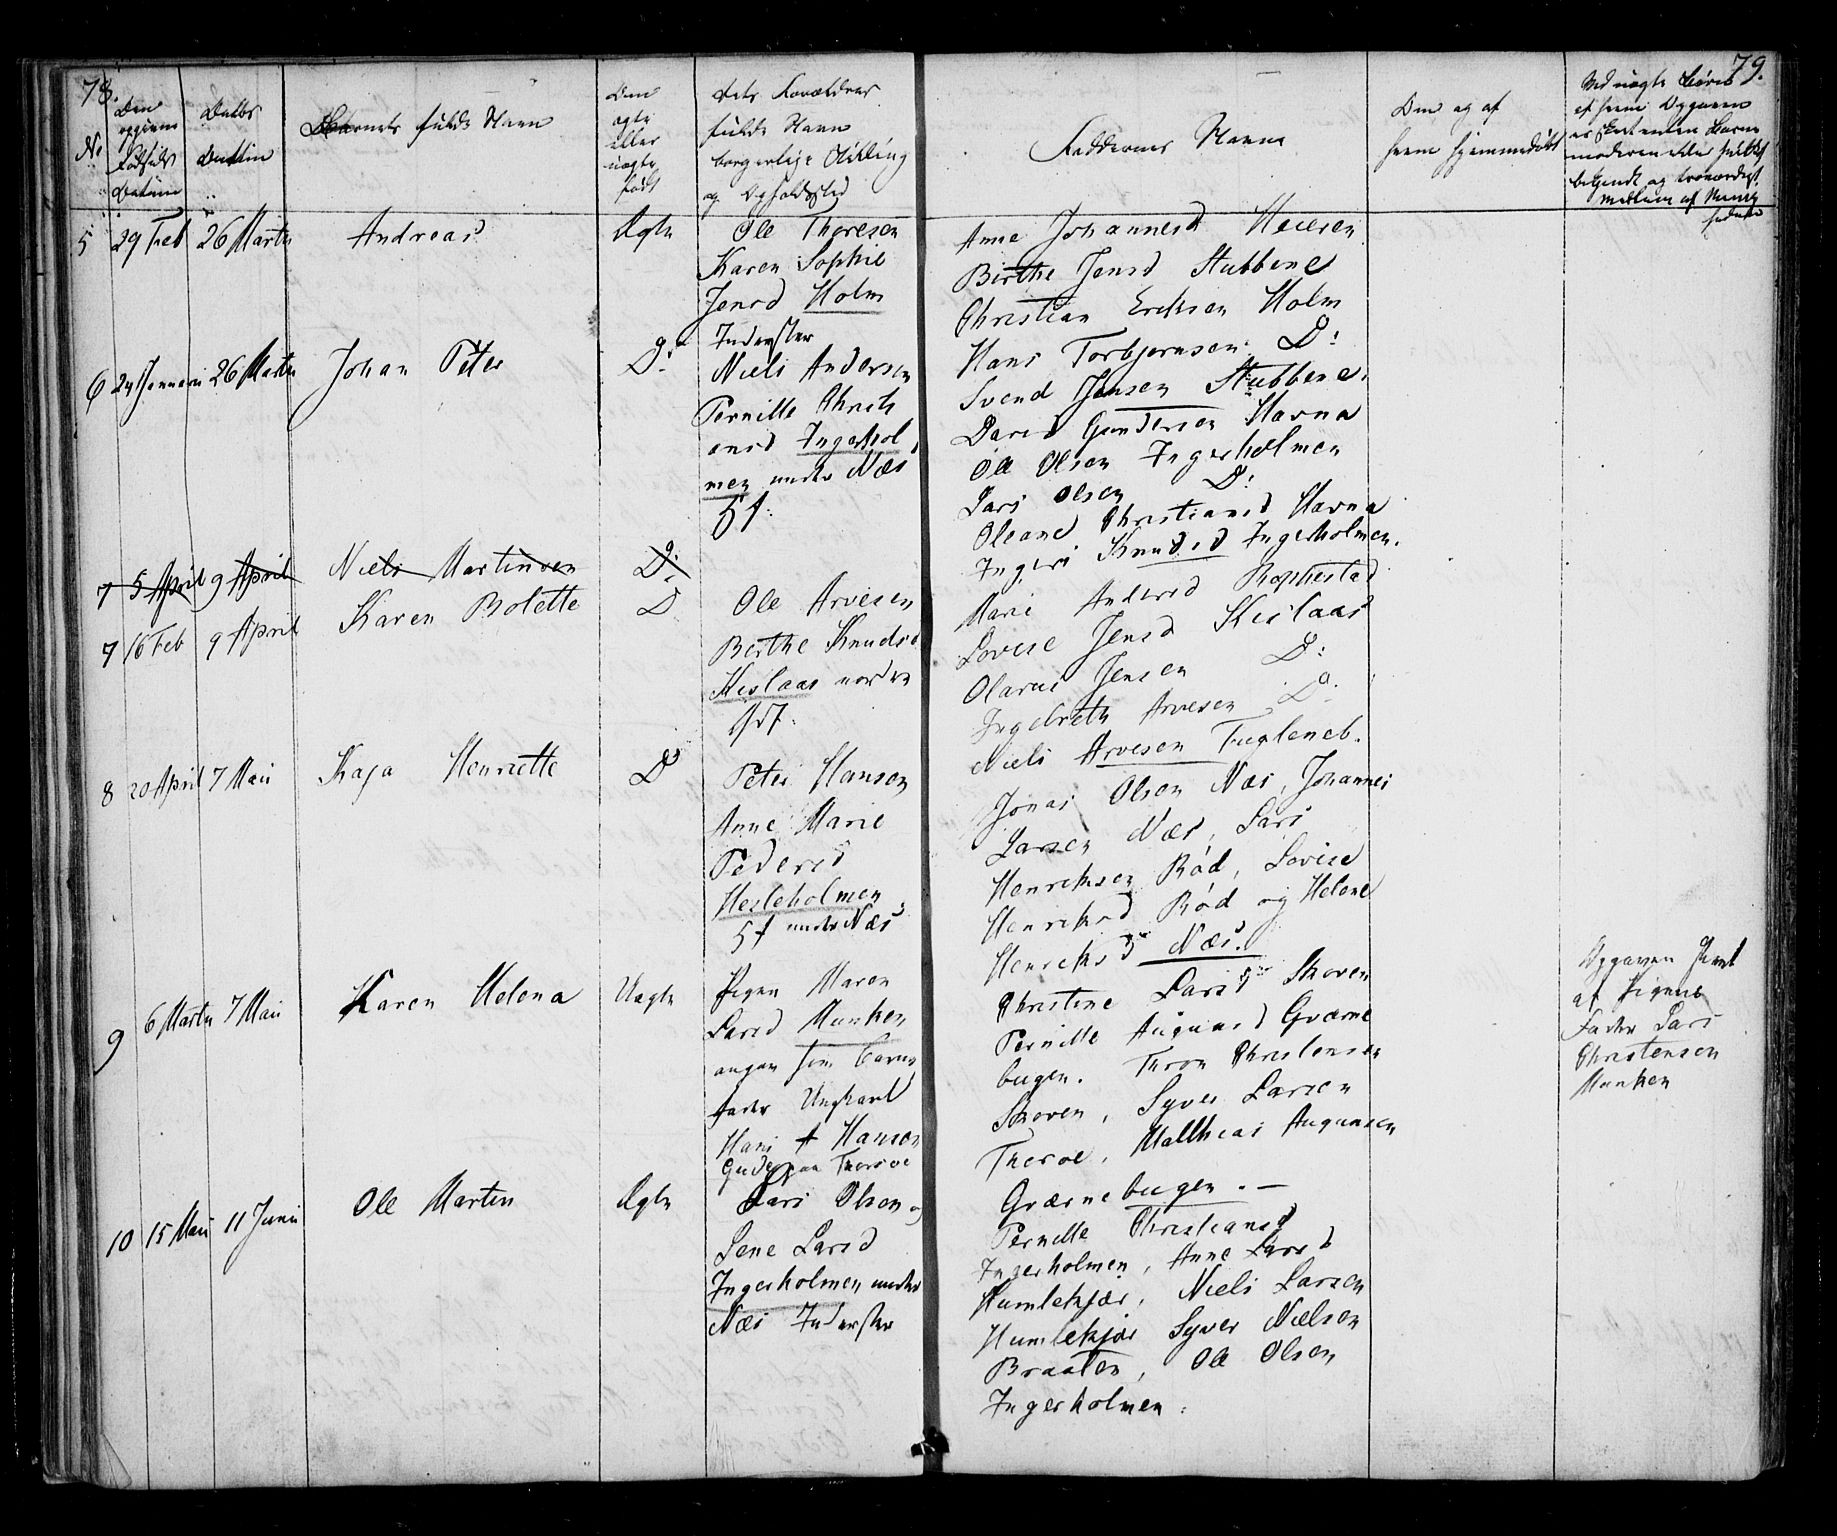 78.
79.
No
Den
opgivne
Fødsels
Datum
Daabs
Datum
Barnets fulde Navn
Om
ægte
eller
uægte
født
dets Forældres
fulde Navn
borgerlige Stilling
og Opholdssted
Faddernes Navne
Om og af
hvem hjemmedøbt
Ved uægte Børn
af hvem Opgaven
er skeet enten Barne
moderen eller
bekjendt og troværdigt
Medlem af Menig
heden
5 29 Feb 26 Martii Andreas Ægte
Ole Thoresen
Karen Sophie
Jensd Holm
Inderster
Anne Johannesd
Birthe Jensd Stubbene
Christian Eriksen Holm
Hans Torbjørnsen Do:
Svend Jensen Stubbene.
6 24 Januari 26 Martii Johan Peter Do:
Niels Andersen
Pernille Christi
ansd Ingerhol
men under Næs
5 f.
David Gundersen Havna
Ole Olsen Ingerholmen
Lars Olsen Do:
Oleane Christiansd Havna
Ingeri Knudsd Ingerholmen.
7 5 April 9 April Niels Martinsen Do:
7 16 Feb 9 April Karen Bolette Do
Ole Arvesen
Berthe Knudsd
Kislaas nordre
Marie Andersd Rophestad
Lovise Jensd Kislaas
Olarus Jensen Do:
Ingebreth Arvesen Do.
Niels Arvesen Fugleneb.
8 20 April 7 Maii Kaja Henriette Do
Peter Hansen
Anne Marie
Pedersd
Hesleholmen
5 f under Næs
Jonas Olsen Næs, Johannes
Larsen Næs, Lars
Henriksen Rød, Lovise
Henriksd Rød og Helene
Henriksd Næs.
9 6 Martii 7 Maii Karen Helena Uægte
Pigen Maren
Larsd Munken
angav som Barne
fader Ungkarl
Hans Hansen
Thoroe
Christine Larsd Skoven
Pernille Augunsd Grærne
bugen. Thron Christensen
Skoven, Syver Larsen
Thoroe, Matthias Augunsen
Grærnebugen. —
Opgaven skeet
af Pigens
Fader Lars
Christensen
Munken
10 15 Maii 11 Junii Ole Martin Ægte
Lars Olsen og
Lene Larsd
Ingerholmen under
Næs Inderster
Pernille Christiansd
Ingerholmen, Anne Larsd
Humlekjær, Niels Larsen
Humlekjær Syver Nielsen
Braaten, Ole Olsen
Ingerholmen.